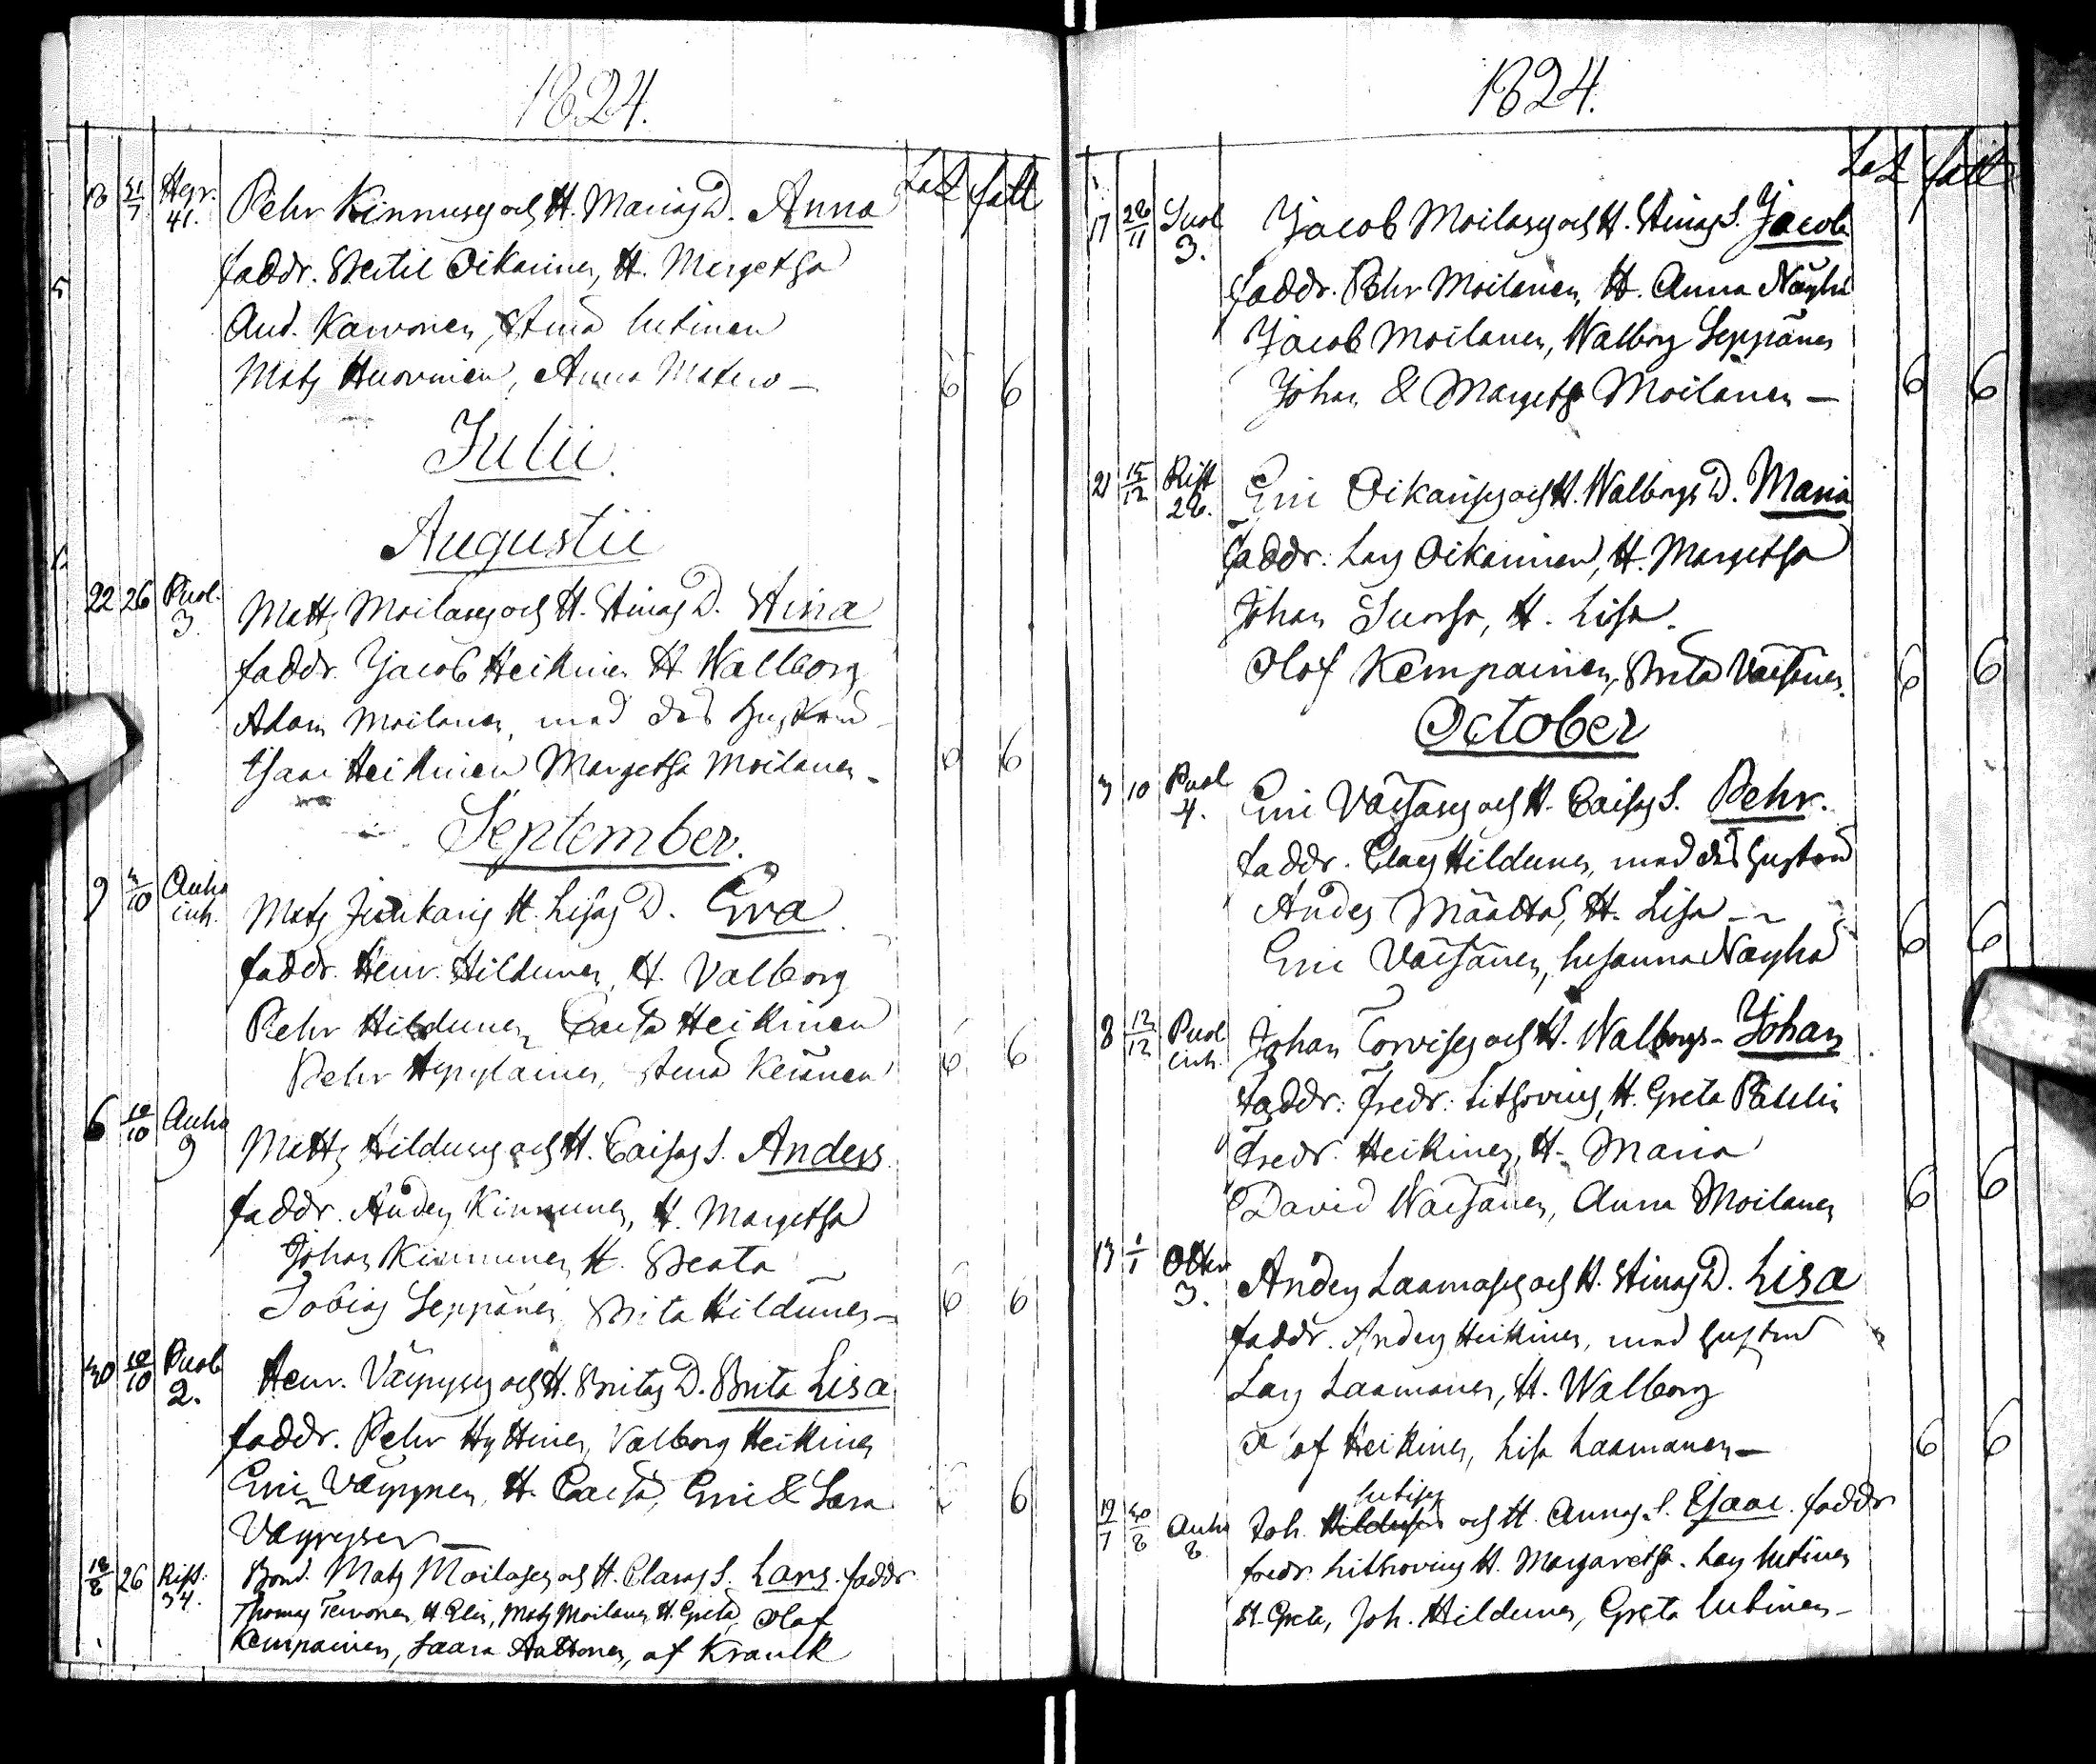 1824.
Lät fatt
18 31/7 Hyr. 41. Pehr Kinnusey och H. Marias D. Anna
faddr. Bertil Oikarinen, H. Margetha
And. Karvonen, Stina Lutinen
Mats Huovinen, Anna
6 6
Julii.
Augustii
22 26 Puol. 3. Matts Moilasen och H. Stinas D. Stina
faddr. Jacob Heikinen H Walborg
Adam Moilanen, med des hustru
Esaac Heikinen Margetha Moilanen
6 6
September.
9 3/10 Auho inh. Mats H. Lisas D. Eva
faddr. Henr. Hildunen, H. Valborg
Pehr Hildunen Caisa Heikinen
Pehr Hyrylainen, Stina Keränen
6 6
6 10/10 Auho 9 Matts Hildusen och H. Caisas S. Anders
faddr. Anders Kinnunen, H. Margetha
Johan Kinnunen H. Beata
Tobias Seppänen Brita Hildunen
6 6
30 10/10 Puol 2. Henr. Väyrysen och H. Britas D. Brita Lisa
faddr. Pehr Hyttinen, Valborg Heikinen
Eric Väyrynen, H. Caisa, Eric & Sara
6
Väyrynen
18/8 26 Rist. 34. Bond. Mats Moilasen och H. Claras S. Lars. faddr
Thomas Tervonen H Elin, Mats Moilanen H. Greta, Olof
Kempainen, Saara Aaltonen, af
1824.
Lät fatt
17 28/11 Suol 3. Jacob Moilasen och H. Stinas S. Jacob
faddr. Pehr Moilanen, H. Anna Näyhä
Jacob Moilanen, Walborg Seppänen
Johan & Margetha Moilanen
6 6
21 15/12 Rist 28. Eric Oikarisen och H. Walborgs D. Maria
faddr. Lars Oikarinen, H. Margetha
Johan H. Lisa.
Olof Kempainen, Brita Väisänen.
6 6
October
3 10 Puol 4. Eric Väisäsen och H. Caisas S. Pehr.
faddr. Claes Hildunen, med des hustru
Anders Määttä, H. Lisa
Eric Väisänen, Susanna Näyhä
6 6
8 12/12 Puol inh. Johan Torvisen och H. Walborgs Johan
faddr: Fredr: Lithovius, H. Greta
Fredr. Heikinen, H. Maria
David Waisänen, Anna Moilanen
6 6
13 1/1 Otter 3. Anders Laamasen och H. Stinas D. Lisa
faddr. Anders Heikinen, med hustru
Lars Laamanen, H. Walborg
Olof Heikinen, Lisa Laamanen
6 6
Lutisen
19/7 30/8 Auho 8. Joh. Hildusen och H. Annas S. Esaac. faddr
Fredr. Lithovius H. Margaretha. Lars Lutinen
H. Greta, Joh. Hildunen, Greta Lutinen